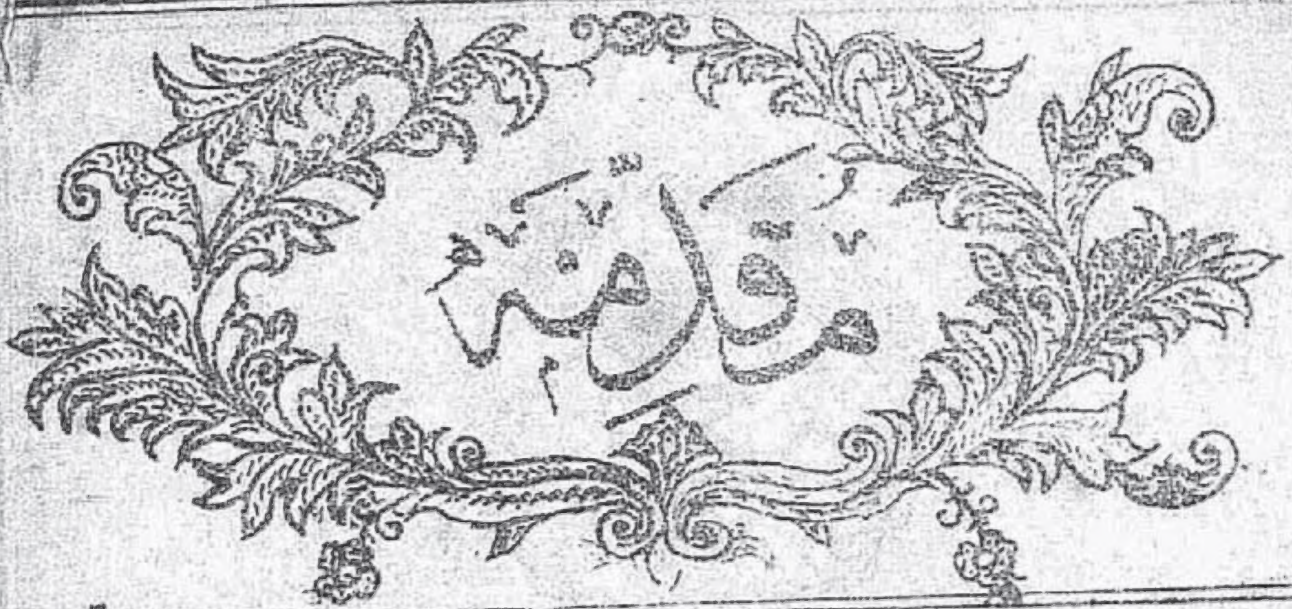 مُقَدِّمَة